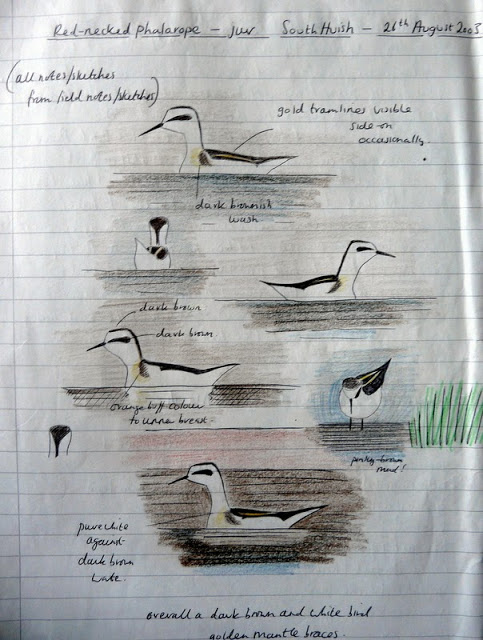 Red-necked phalarope - juv. South Huish - 26th August 2003
(all notes/sketches
from field notes/sketches)
gold tramlines visible
side-on
occasionally.
dark brownish
wash
dark brown
dark brown.
orange buff colour
to upper breast
pinky-brown
mud!
pure white
against
dark brown
Overall a dark brown and white bird
golden mantle braces.